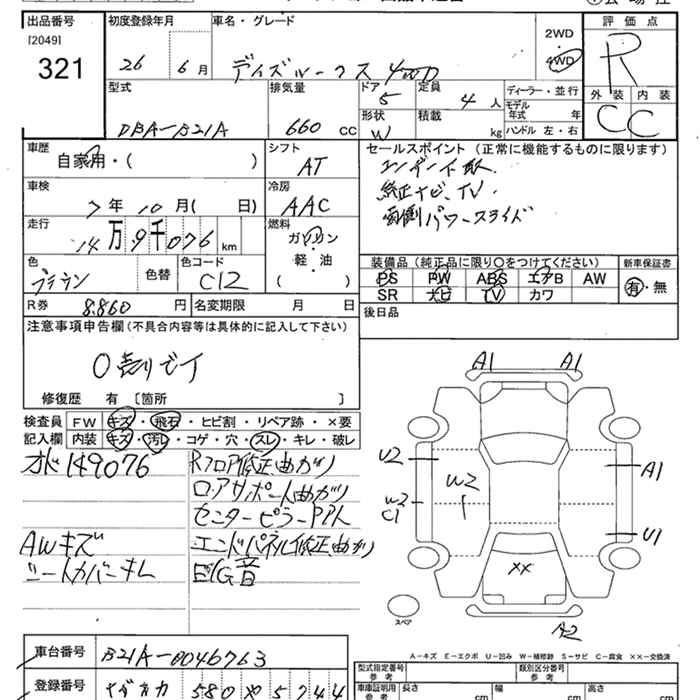 出品番号 初度登録年月 車名・グレード 評価点
[2049]
321
26 6月 ディズルークス 4WD 2WD 4WD R
型式 排気量 ドア 5 定員 4人 ディーラー・並行 外装 内装
モデル年式 年
DBA-B21A 660 CC 形状 W 積載 kg ハンドル 左・右 C C
車歴 自家用・( ) シフト AT セールスポイント (正常に機能するものに限ります)
車検 7年10月( 日) 冷房 AAC 純正ナビ、TV.
両側パワースライド
走行 14万9千076 km 燃料 ガソリン・軽・油 ( )
色 ブラウン 色替 色コード C12 装備品 (純正品に限り〇をつけてください) 新車保証書
PS PW ABS エアB AW 有・無
SR ナビ TV カワ
R券 8.860円 名変期限 月 日 後日品
注意事項申告欄 (不具合内容等は具体的に記入して下さい)
修復歴 有 〔箇所 〕
検査員記入欄 FW キズ・飛石・ヒビ割・リペア跡・×要
内装 キズ・汚レ・コゲ・穴・スレ・キレ・破レ
149076 Rフロア修正曲ガリ
ロアサポート曲ガリ
センターピラー
AWキズ エンドパネル修正曲ガリ
シートカバーキレ E/G音
A1 A1
U2 A1
W2 W2
C1
U1
××
A2
スペア
A-キズ E-エクボ U-凹み W-補修跡 S-サビ C-腐食 ××-交換済
車台番号 B21A-0046763
登録番号 580 や 5744
型式指定番号 参考 類別区分番号 参考
車庫証明用 参考 長さ cm 幅 cm 高さ cm